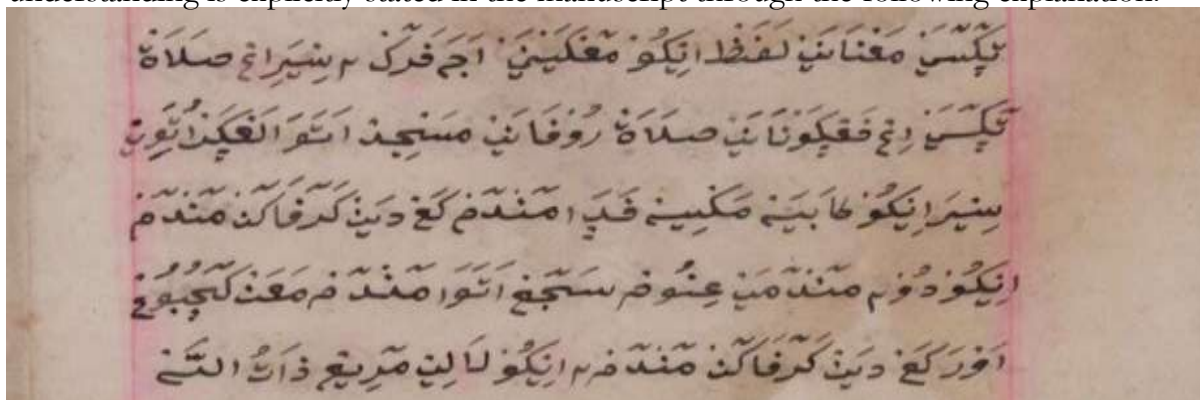 understanding is explicitly stated in the manuscript through the following explanation:
تٓݢٓسَيْ مَعْنَانَيْ لَفَظ اِيكُوْ مَڠْكَيْنَيْ اَجَ فَرٓكْ٢ سِيرَ اِڠْ صَلَاةْ
تٓݢٓسَيْ اِڠْ فَڠْݢَوْنَانَيْ صَلَاةْ رُوْفَانَيْ مَسْجِدْ اَتَوَا الَڠْݢَرْ اُتَوِيْ
سِيرَ اِيكُوْ كَابَيَهْ مَكْسِيهْ فَدَا مٓنْدٓمْ كَڠْ دَيْنْ كَرٓفَاكٓنْ مٓنْدٓمْ
اِيكُوْ دُوْ٢ مٓنْدٓمَيْ عِنُومْ سَجٓڠْ اَتَوَا مٓنْدٓمْ مَڠَنْ كٓچُبُوْڠْ
اَفَوْرَ كَڠْ دَيْنْ كَرٓفَاكٓنْ مٓنْدٓمْ٢ اِيكُوْ لَالِيْ مَرِيڠْ ذَاتُ